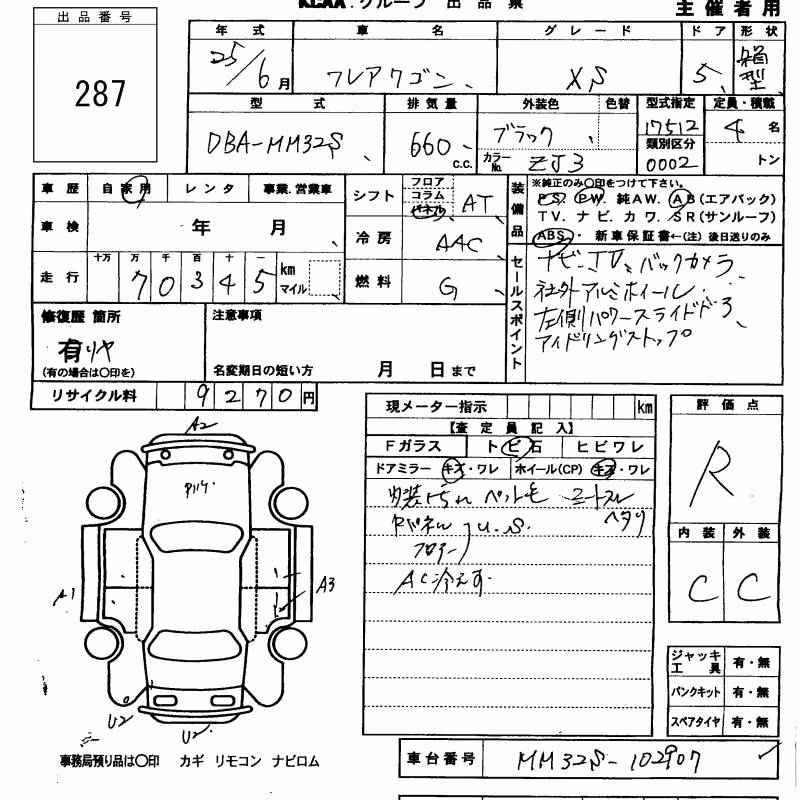 KCAA.グループ 出品票
主催者用
出品番号
287
年式 車名 グレード ドア 形状
25/6月 フレアワゴン XS 5 箱型
型式 排気量 外装色 色替 型式指定 定員・積載
DBA-MM32S 660 c.c. ブラック 17512 4 名
カラーNo. ZJ3 類別区分 0002 トン
車歴 自家用 レンタ 事業.営業車
シフト フロア コラム パネル AT
車検 年 月
冷房 AAC
走行 十万 万 千 百 十 一
70345 km マイル
燃料 G
装備品
※純正のみ○印をつけて下さい。
PS. PW. 純AW. AB(エアバック)
TV. ナビ. カワ. SR(サンルーフ)
ABS. 新車保証書←(注)後日送りのみ
セールスポイント
ナビ.TV.バックカメラ
社外アルミホイール
左側パワースライドドア
アイドリングストップ
修復歴 箇所
有 リヤ
(有の場合は○印を)
注意事項
名変期日の短い方 月 日まで
リサイクル料 9270円
現メーター指示 km
【査定員記入】
Fガラス トビ石 ヒビワレ
ドアミラー キズ・ワレ ホイール(CP) キズ・ワレ
内装 ペット毛
ヘタリ
Rパネル U.S
フロアー
AC冷えず
評価点
R
内装 外装
C C
A2
A1
A3
U2
U2
ジャッキ 工具 有・無
パンクキット 有・無
スペアタイヤ 有・無
事務局預り品は○印 カギ リモコン ナビロム
車台番号 MM32S-102907